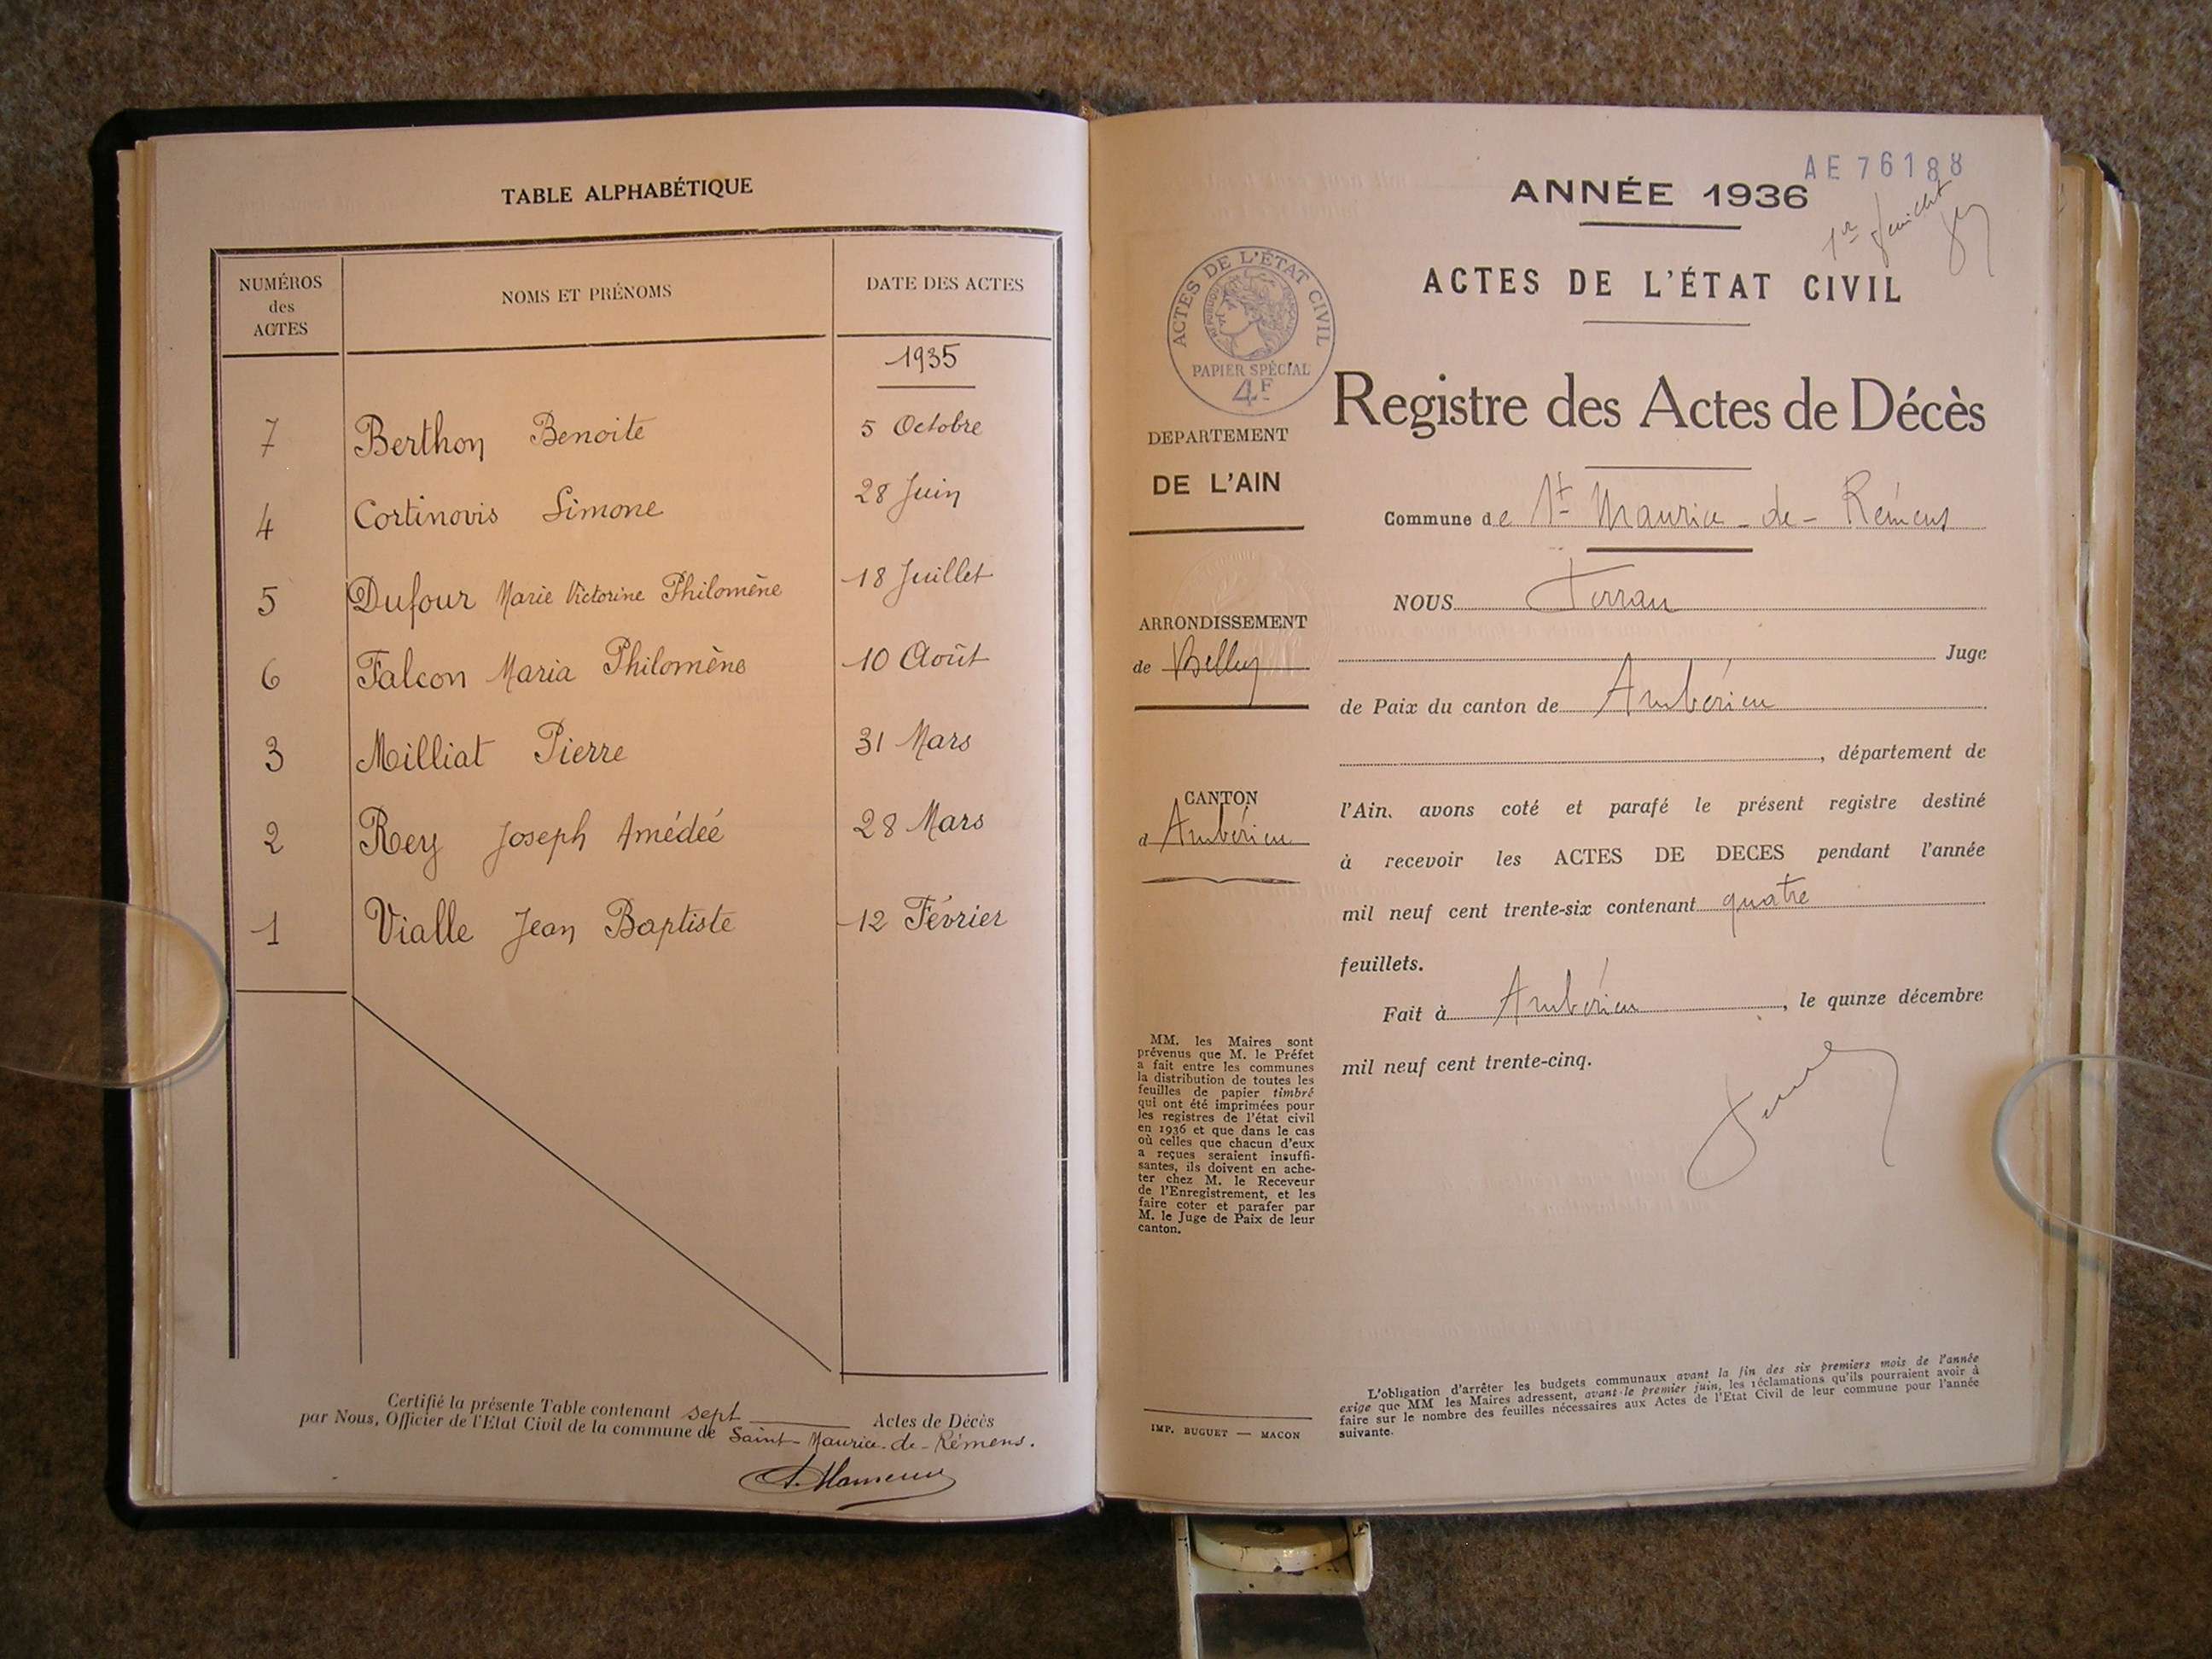 TABLE ALPHABÉTIQUE
NUMÉROS des ACTES NOMS ET PRÉNOMS DATE DES ACTES
1935
7 Berthon Benoite 5 Octobre
4 Cortinovis Simone 28 Juin
5 Dufour Marie Victorine Philomène 18 Juillet
6 Falcon Maria Philomène 10 Août
3 Milliat Pierre 31 Mars
2 Rey Joseph Amédéé 28 Mars
1 Vialle Jean Baptiste 12 Février
Certifié la présente Table contenant sept Actes de Décès
par Nous, Officier de l'Etat Civil de la commune de Saint-Maurice-de-Rémens.
AE 76188
ANNÉE 1936
1er feuillet
ACTES DE L'ÉTAT CIVIL
ACTES DE L'ÉTAT CIVIL
RÉPUBLIQUE FRANÇAISE
PAPIER SPÉCIAL
4F
Registre des Actes de Décès
DEPARTEMENT
DE L'AIN
Commune de St Maurice-de-Rémens
ARRONDISSEMENT
de Belley
CANTON
d Ambérieu
NOUS Ferran
Juge
de Paix du canton de Ambérieu
, département de
l'Ain. avons coté et parafé le présent registre destiné
à recevoir les ACTES DE DECES pendant l'année
mil neuf cent trente-six contenant quatre
feuillets.
Fait à Ambérieu, le quinze décembre
mil neuf cent trente-cinq.
MM. les Maires sont
prévenus que M. le Préfet
a fait entre les communes
la distribution de toutes les
feuilles de papier timbré
qui ont été imprimées pour
les registres de l'état civil
en 1936 et que dans le cas
où celles que chacun d'eux
a reçues seraient insuffi-
santes, ils doivent en ache-
ter chez M. le Receveur
de l'Enregistrement, et les
faire coter et parafer par
M. le Juge de Paix de leur
canton.
IMP. BUGUET — MACON
L'obligation d'arrêter les budgets communaux avant la fin des six premiers mois de l'année
exige que MM les Maires adressent, avant le premier juin, les réclamations qu'ils pourraient avoir à
faire sur le nombre des feuilles nécessaires aux Actes de l'Etat Civil de leur commune pour l'année
suivante.